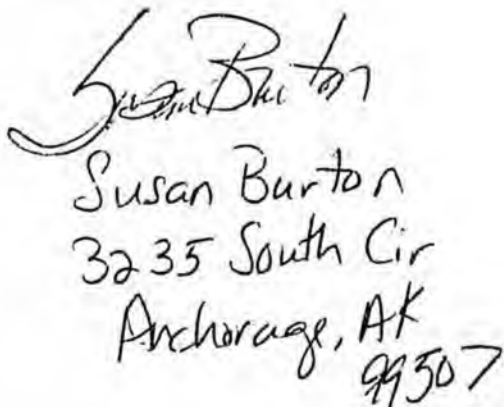 Susan Burton
Susan Burton
3235 South Cir
Anchorage, AK
99507